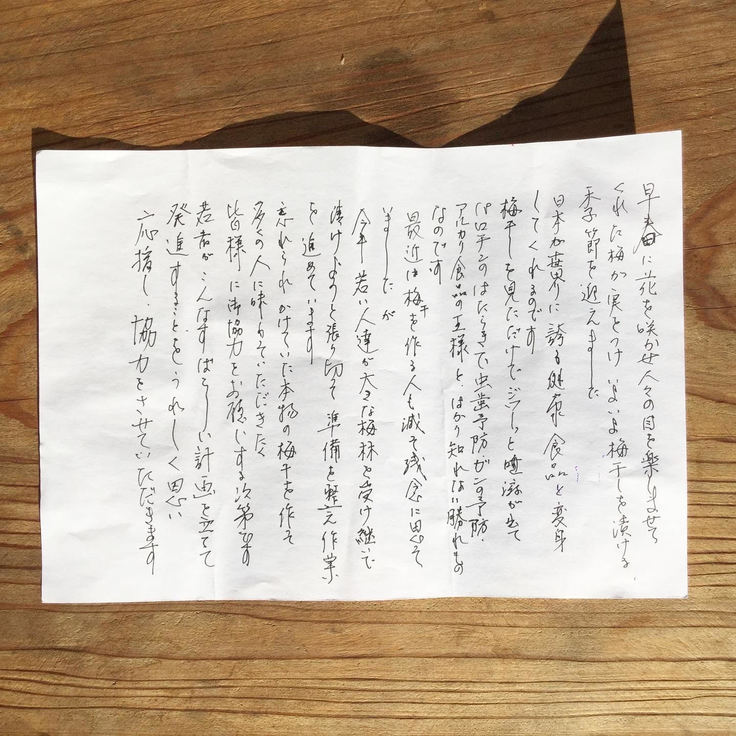 早春に花を咲かせ人々の目を楽しませて
くれた梅が実をつけ いよいよ梅干しを漬ける
季節を迎えました
日本が世界に誇る健康食品と変身
してくれるのです
梅干しを見ただけでジワーっと唾液が出て
パロチンのはたらきで虫歯予防ガンの予防・
アルカリ食品の王様と はかり知れない勝れもの
なのです
最近は梅干を作る人も減って残念に思って
いましたが
今年 若い人達が大きな梅林を受け継いで
漬けようと張り切って 準備を整え作業
を進めています
忘れられかけていた本物の梅干を作って
多くの人に味わっていただきたく
皆様に御協力をお願いする次第です
若者がこんなすばらしい計画を立てて
発進することをうれしく思い
応援し、協力をさせていただきます